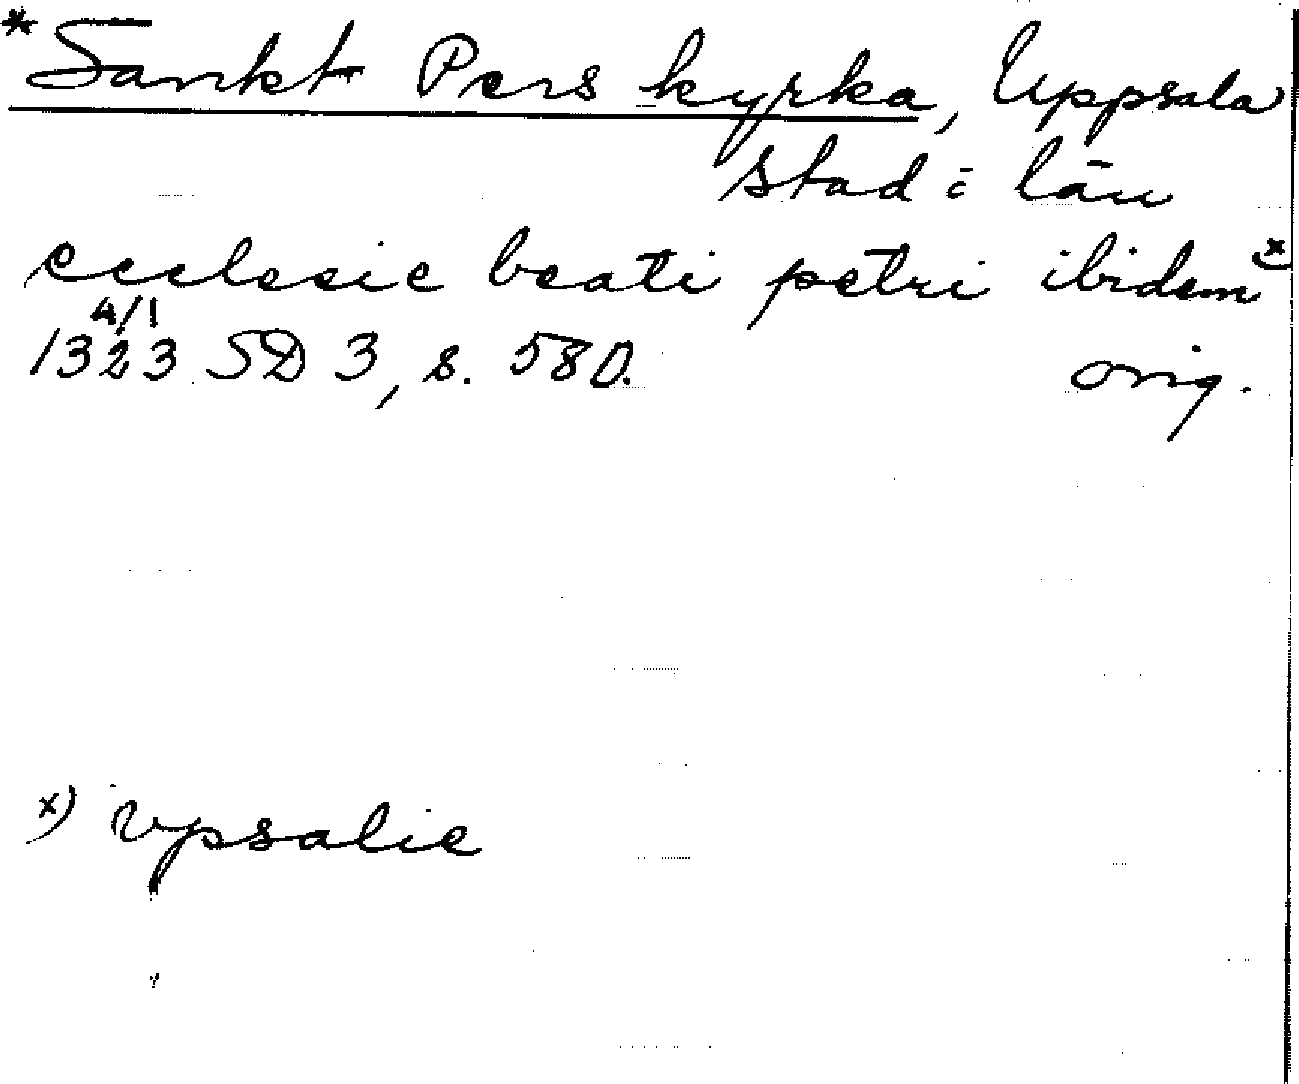 * Sankt Pers kyrka, Uppsala
stad o län
ecclesie beati petri ibidem x)
4/1
1323 SD 3, s. 580. orig.
x) vpsalie